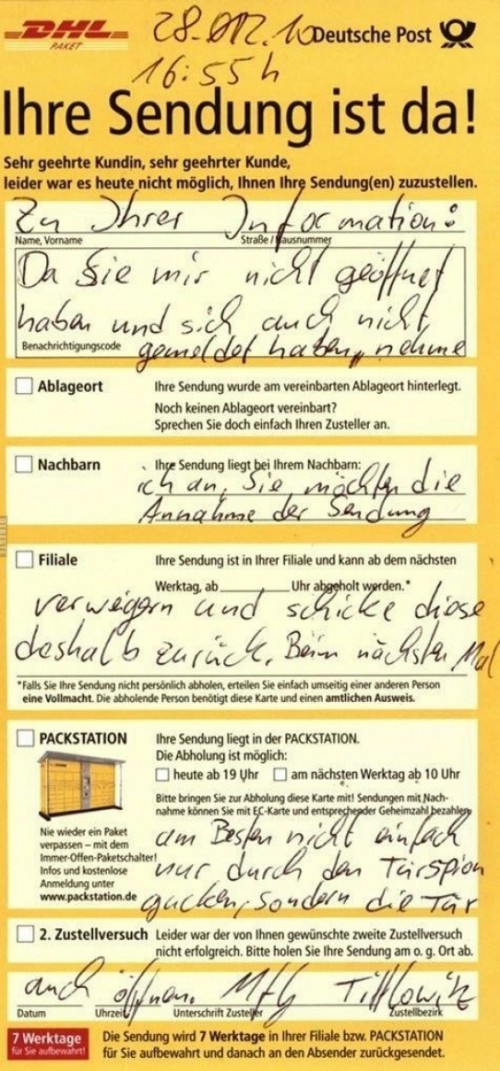 DHL
PAKET
28.012.10
Deutsche Post
16:55 h
Ihre Sendung ist da!
Sehr geehrte Kundin, sehr geehrter Kunde,
leider war es heute nicht möglich, Ihnen Ihre Sendung(en) zuzustellen.
Zu Ihrer Information:
Name, Vorname
Straße / Hausnummer
Da Sie mir nicht geöffnet
haben und sich auch nicht
Benachrichtigungscode
gemeldet haben, nehme
Ablageort
Ihre Sendung wurde am vereinbarten Ablageort hinterlegt.
Noch keinen Ablageort vereinbart?
Sprechen Sie doch einfach Ihren Zusteller an.
Nachbarn
Ihre Sendung liegt bei Ihrem Nachbarn:
ich an, Sie möchten die
Annahme der Sendung
Filiale
Ihre Sendung ist in Ihrer Filiale und kann ab dem nächsten
Werktag, ab Uhr abgeholt werden.*
verweigern und schicke diese
deshalb zurück. Beim nächsten Mal
*Falls Sie Ihre Sendung nicht persönlich abholen, erteilen Sie einfach umseitig einer anderen Person
eine Vollmacht. Die abholende Person benötigt diese Karte und einen amtlichen Ausweis.
PACKSTATION
Ihre Sendung liegt in der PACKSTATION.
Die Abholung ist möglich:
heute ab 19 Uhr am nächsten Werktag ab 10 Uhr
Bitte bringen Sie zur Abholung diese Karte mit! Sendungen mit Nach-
nahme können Sie mit EC-Karte und entsprechender Geheimzahl bezahlen.
Nie wieder ein Paket
verpassen – mit dem
Immer-Offen-Paketschalter!
Infos und kostenlose
Anmeldung unter
www.packstation.de
am Besten nicht einfach
nur durch den Türspion
gucken, sondern die Tür
2. Zustellversuch
Leider war der von Ihnen gewünschte zweite Zustellversuch
nicht erfolgreich. Bitte holen Sie Ihre Sendung am o. g. Ort ab.
auch öffnen. MfG Tillowitz
Datum
Uhrzeit
Unterschrift Zusteller
Zustellbezirk
7 Werktage
für Sie aufbewahrt!
Die Sendung wird 7 Werktage in Ihrer Filiale bzw. PACKSTATION
für Sie aufbewahrt und danach an den Absender zurückgesendet.